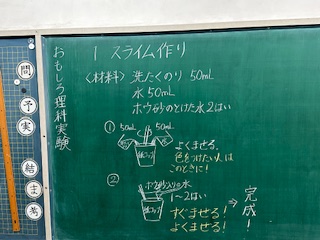 おもしろ理科実験
問
予
実
結
ま
考
1 スライム作り
〈材料〉 洗たくのり 50mL
水 50mL
ホウ砂のとけた水2はい
① 50mL 50mL
紙コップ
よくまぜる。
色をつけたい人は
このときに!
②
ホウ砂入りの水
1～2はい
紙コップ
すぐまぜる!
よくまぜる!
⇒ 完成!